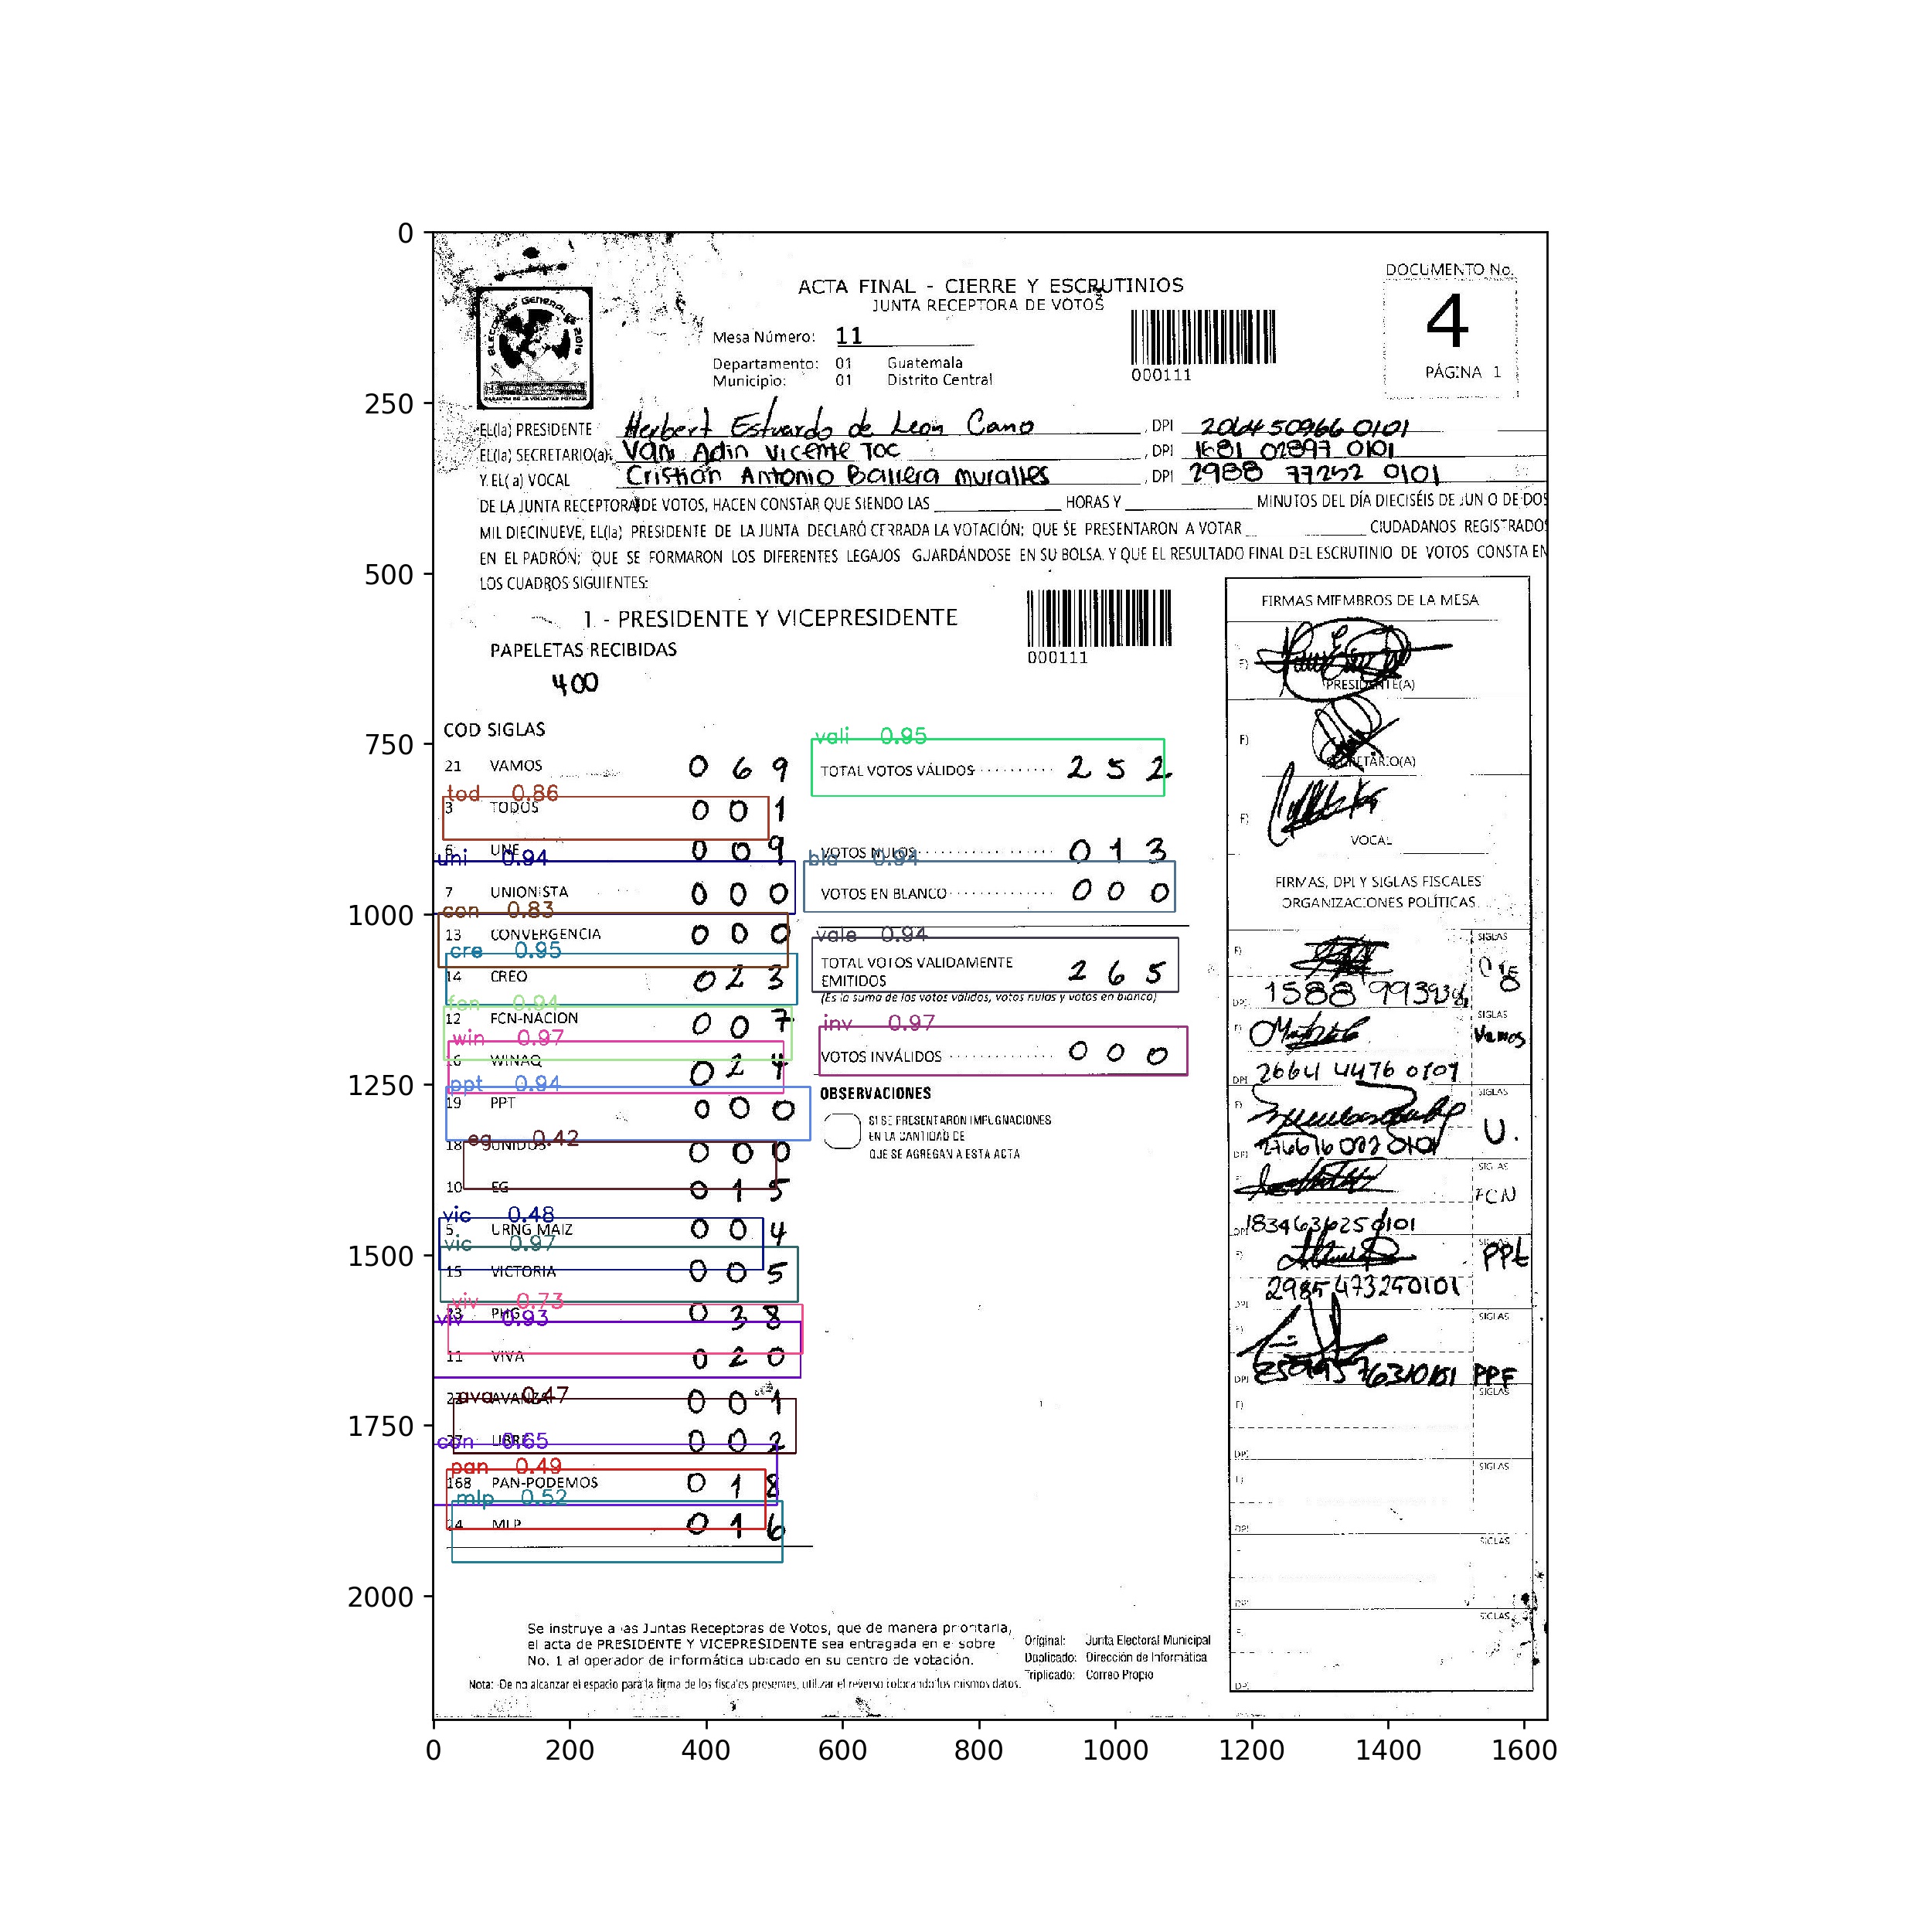 ACTA FINAL - CIERRE Y ESCRUTINIOS
JUNTA RECEPTORA DE VOTOS
DOCUMENTO No.
4
PÁGINA 1
Mesa Número: 11
Departamento: 01 Guatemala
Municipio: 01 Distrito Central
000111
EL(la) PRESIDENTE Herbert Estuardo de León Cano , DPI 2064 50966 0101
EL(la) SECRETARIO(a): Vani Adin Vicente Toc , DPI 1681 02897 0101
Y EL( a) VOCAL Cristian Antonio Barrera Muralles , DPI 2988 77252 0101
DE LA JUNTA RECEPTORA DE VOTOS, HACEN CONSTAR QUE SIENDO LAS HORAS Y MINUTOS DEL DÍA DIECISÉIS DE JUN O DE DOS
MIL DIECINUEVE, EL(la) PRESIDENTE DE LA JUNTA DECLARÓ CERRADA LA VOTACIÓN; QUE SE PRESENTARON A VOTAR CIUDADANOS REGISTRADOS
EN EL PADRÓN; QUE SE FORMARON LOS DIFERENTES LEGAJOS GUARDÁNDOSE EN SU BOLSA. Y QUE EL RESULTADO FINAL DEL ESCRUTINIO DE VOTOS CONSTA EN
LOS CUADROS SIGUIENTES:
1 - PRESIDENTE Y VICEPRESIDENTE
000111
PAPELETAS RECIBIDAS
400
COD SIGLAS
21 VAMOS 0 6 9
tod 0.86
3 TODOS 0 0 1
6 UNE 0 0 9
uni 0.94
7 UNIONISTA 0 0 0
con 0.83
13 CONVERGENCIA 0 0 0
cre 0.95
14 CREO 0 2 3
fcn 0.94
12 FCN-NACION 0 0 7
win 0.97
16 WINAQ 0 2 4
ppt 0.94
19 PPT 0 0 0
eg 0.42
18 UNIDOS 0 0 0
10 EG 0 1 5
vic 0.48
5 URNG MAIZ 0 0 4
vic 0.97
15 VICTORIA 0 0 5
viv 0.73
23 PHG 0 3 8
viv 0.93
11 VIVA 0 2 0
ava 0.47
22 AVANZA 0 0 1
con 0.65
27 LIBRE 0 0 2
pan 0.49
168 PAN-PODEMOS 0 1 8
mlp 0.52
24 MLP 0 1 6
vali 0.95
TOTAL VOTOS VÁLIDOS 2 5 2
VOTOS NULOS 0 1 3
bla 0.94
VOTOS EN BLANCO 0 0 0
vale 0.94
TOTAL VOTOS VALIDAMENTE
EMITIDOS 2 6 5
(Es la suma de los votos válidos, votos nulos y votos en blanco)
inv 0.97
VOTOS INVÁLIDOS 0 0 0
OBSERVACIONES
SI SE PRESENTARON IMPUGNACIONES
EN LA CANTIDAD DE
QUE SE AGREGAN A ESTA ACTA
FIRMAS MIEMBROS DE LA MESA
F)
PRESIDENTE(A)
F)
SECRETARIO(A)
F)
VOCAL
FIRMAS, DPI Y SIGLAS FISCALES
ORGANIZACIONES POLÍTICAS
F) SIGLAS
DPI
F) SIGLAS
Vamos
DPI 2664 4476 0101
F) SIGLAS
U.
DPI
SIGLAS
FCN
DPI
F) SIGLAS
PPt
2985473240101
DPI
F) SIGLAS
DPI PPF
SIGLAS
F)
DPI
SIGLAS
DPI
SIGLAS
DPI
SIGLAS
DPI
Se instruye a las Juntas Receptoras de Votos, que de manera prioritaria,
el acta de PRESIDENTE Y VICEPRESIDENTE sea entragada en el sobre
No. 1 al operador de informática ubicado en su centro de votación.
Original: Junta Electoral Municipal
Duplicado: Dirección de Informática
Triplicado: Correo Propio
Nota: De no alcanzar el espacio para la firma de los fiscales presentes, utilizar el reverso colocando los mismos datos.
0
250
500
750
1000
1250
1500
1750
2000
0 200 400 600 800 1000 1200 1400 1600